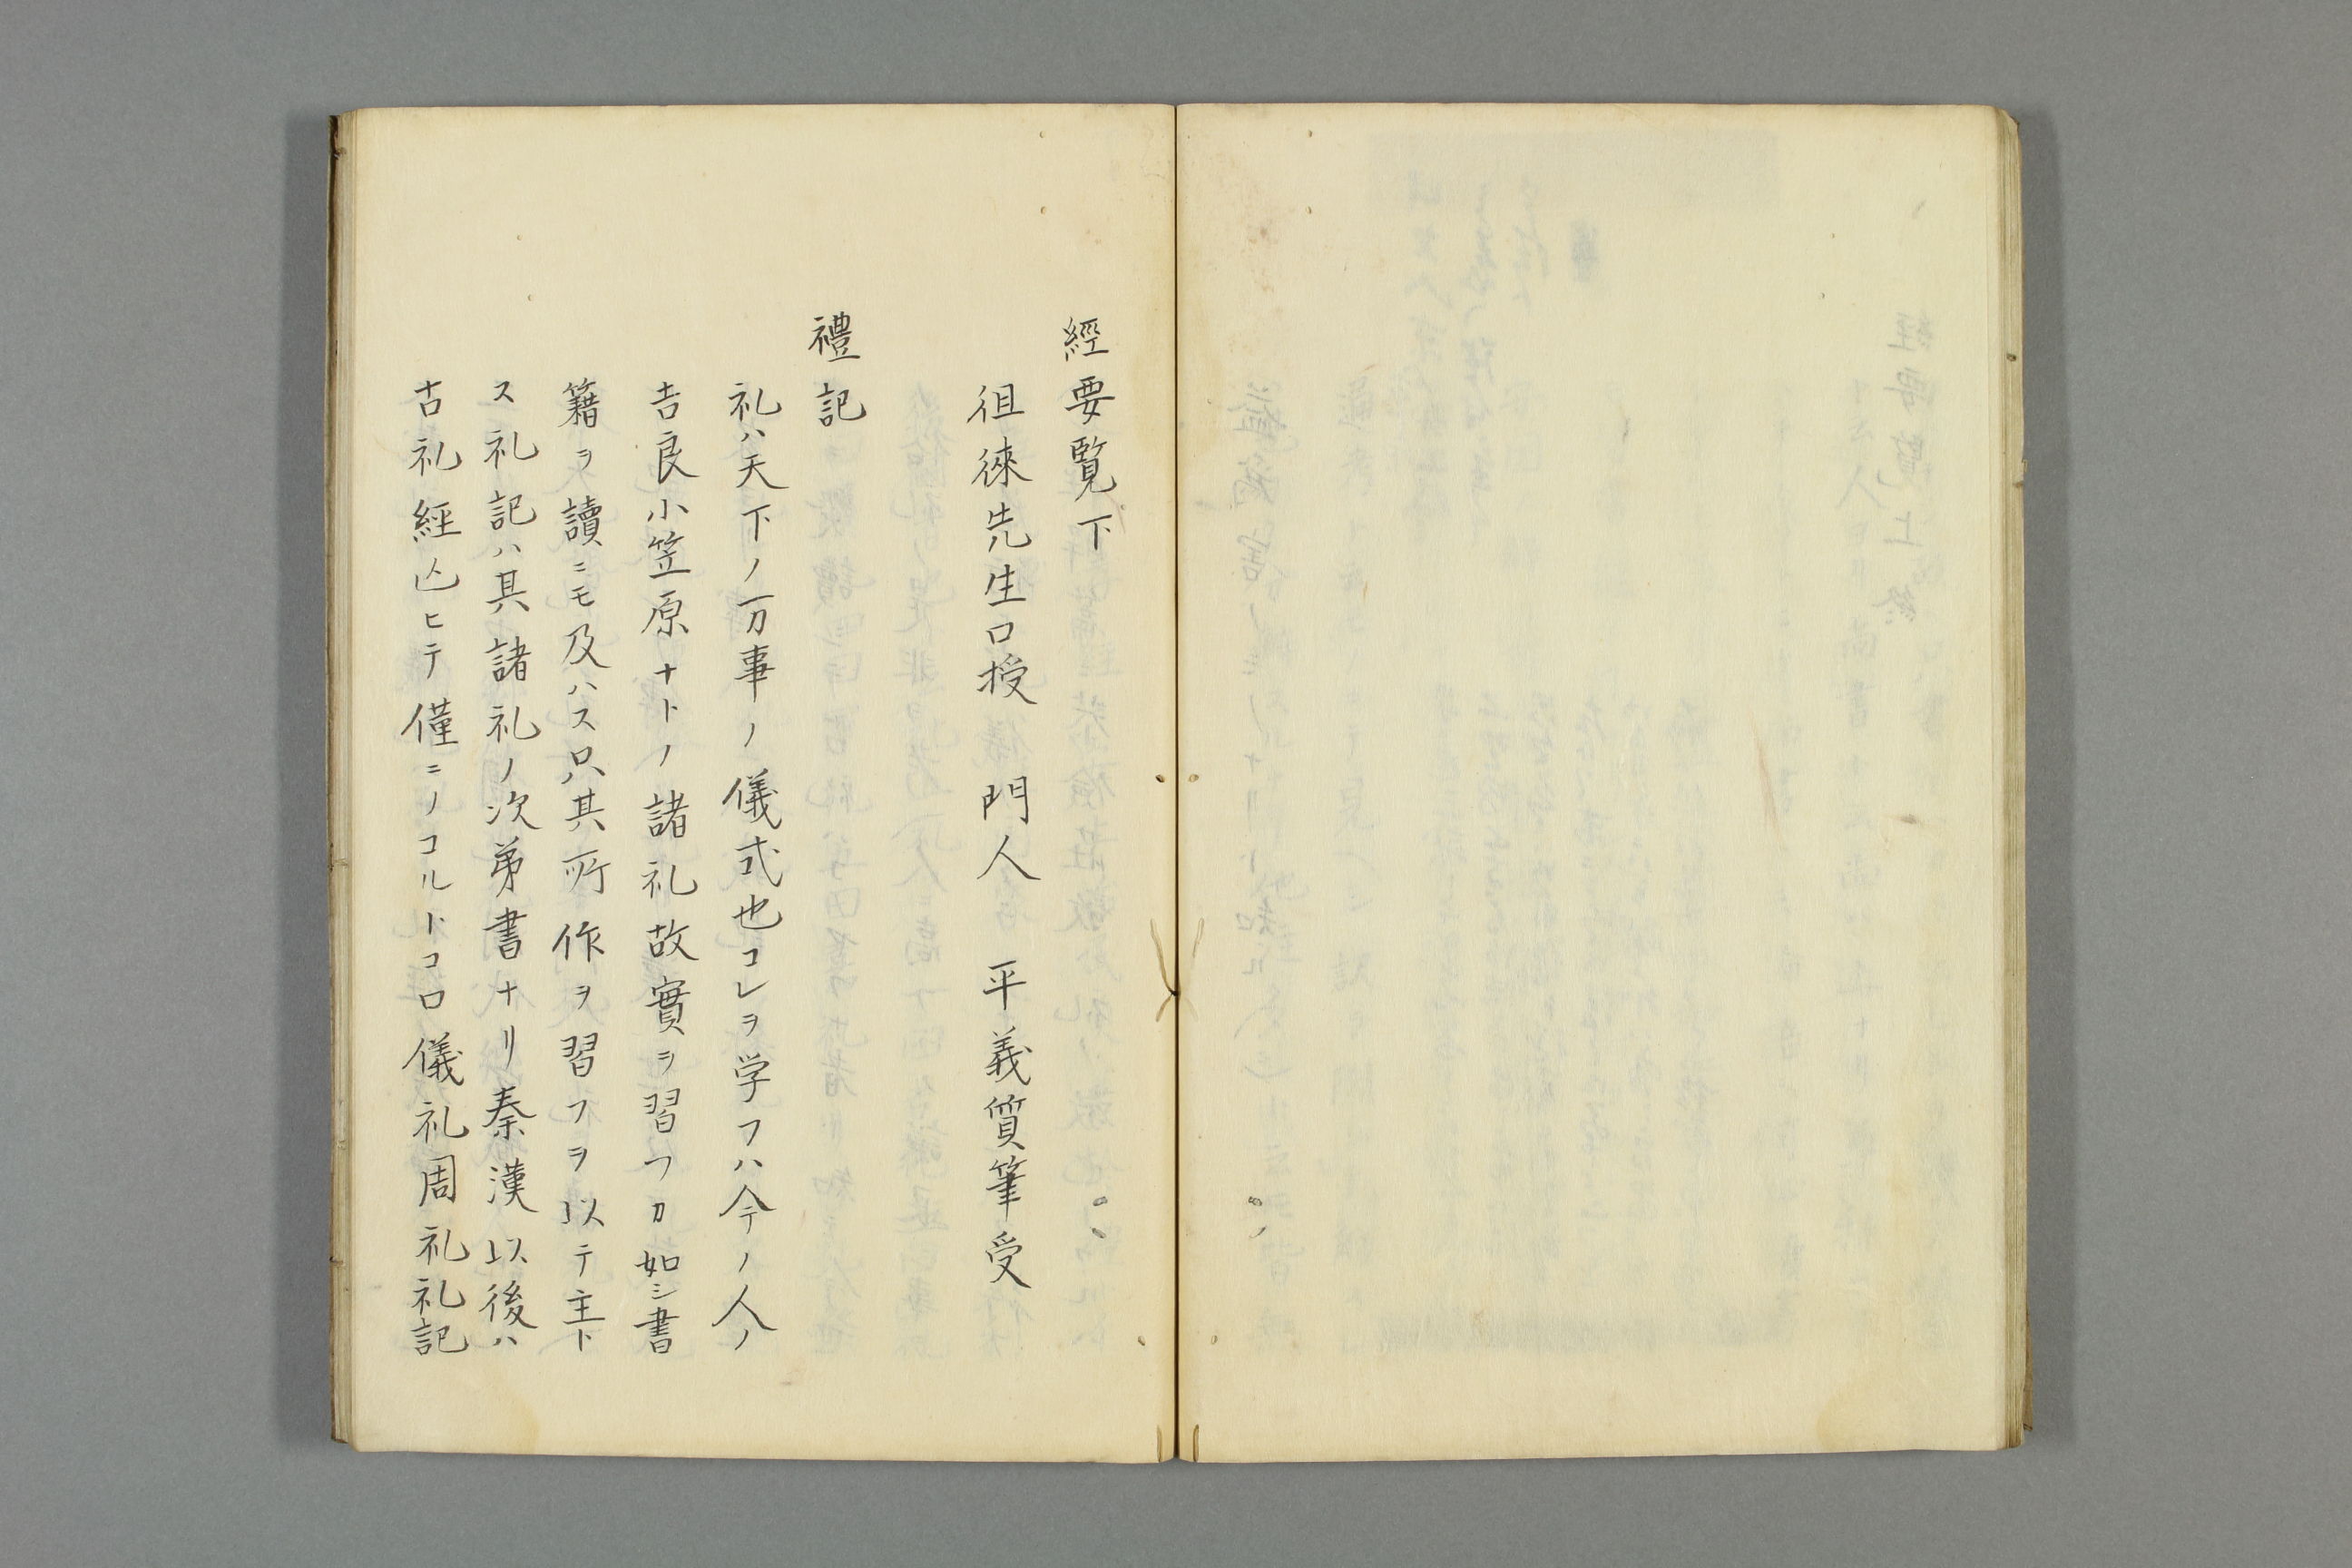 經要覽下
徂徠先生口授　門人　平義質筆受
禮記
礼ハ天下ノ万事ノ儀式也コレヲ学フハ今ノ人ノ
吉良小笠原ナトノ諸礼故實ヲ習フカ如シ書
籍ヲ讀ニモ及ハス只其所作ヲ習フヲ以テ主ト
ス礼記ハ其諸礼ノ次第書ナリ秦漢以後ハ
古礼經亾ヒテ僅ニノコルトコロ儀礼周礼礼記